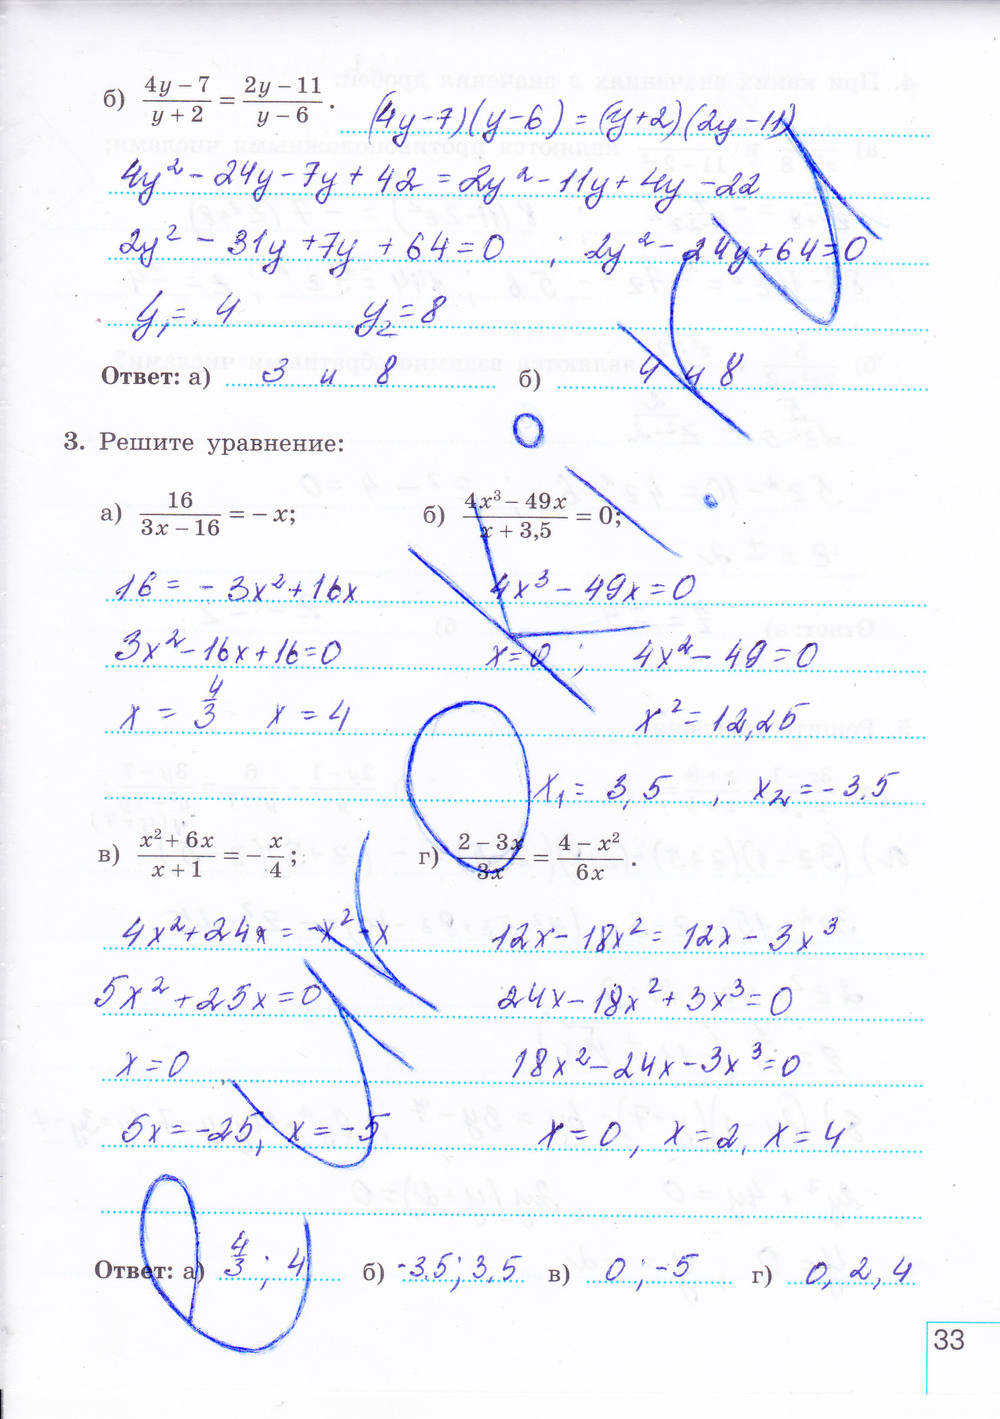 б) (4y − 7)/(y + 2) = (2y − 11)/(y − 6). (4y-7)(y-6) = (y+2)(2y-11)
4y² - 24y - 7y + 42 = 2y² - 11y + 4y - 22
2y² - 31y + 7y + 64 = 0 ; 2y² - 24y + 64 = 0
y₁ = 4 y₂ = 8
Ответ: а) 3 и 8 б) 4 и 8
3. Решите уравнение:
а) 16/(3x − 16) = − x; б) (4x³ − 49x)/(x + 3,5) = 0;
16 = - 3x² + 16x 4x³ - 49x = 0
3x² - 16x + 16 = 0 x = 0 ; 4x² - 49 = 0
x = 4/3 x = 4 x² = 12,25
x₁ = 3,5 ; x₂ = - 3.5
в) (x² + 6x)/(x + 1) = − x/4; г) (2 − 3x)/3x = (4 − x²)/6x.
4x² + 24x = -x² - x 12x - 18x² = 12x - 3x³
5x² + 25x = 0 24x - 18x² + 3x³ = 0
x = 0 18x² - 24x - 3x³ = 0
5x = -25, x = -5 x = 0, x = 2, x = 4
Ответ: а) 4/3 ; 4 б) -3,5 ; 3,5 в) 0 ; -5 г) 0, 2, 4
33